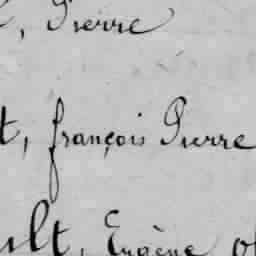 , Pierre
t, françois Pierre
ult, Eugène